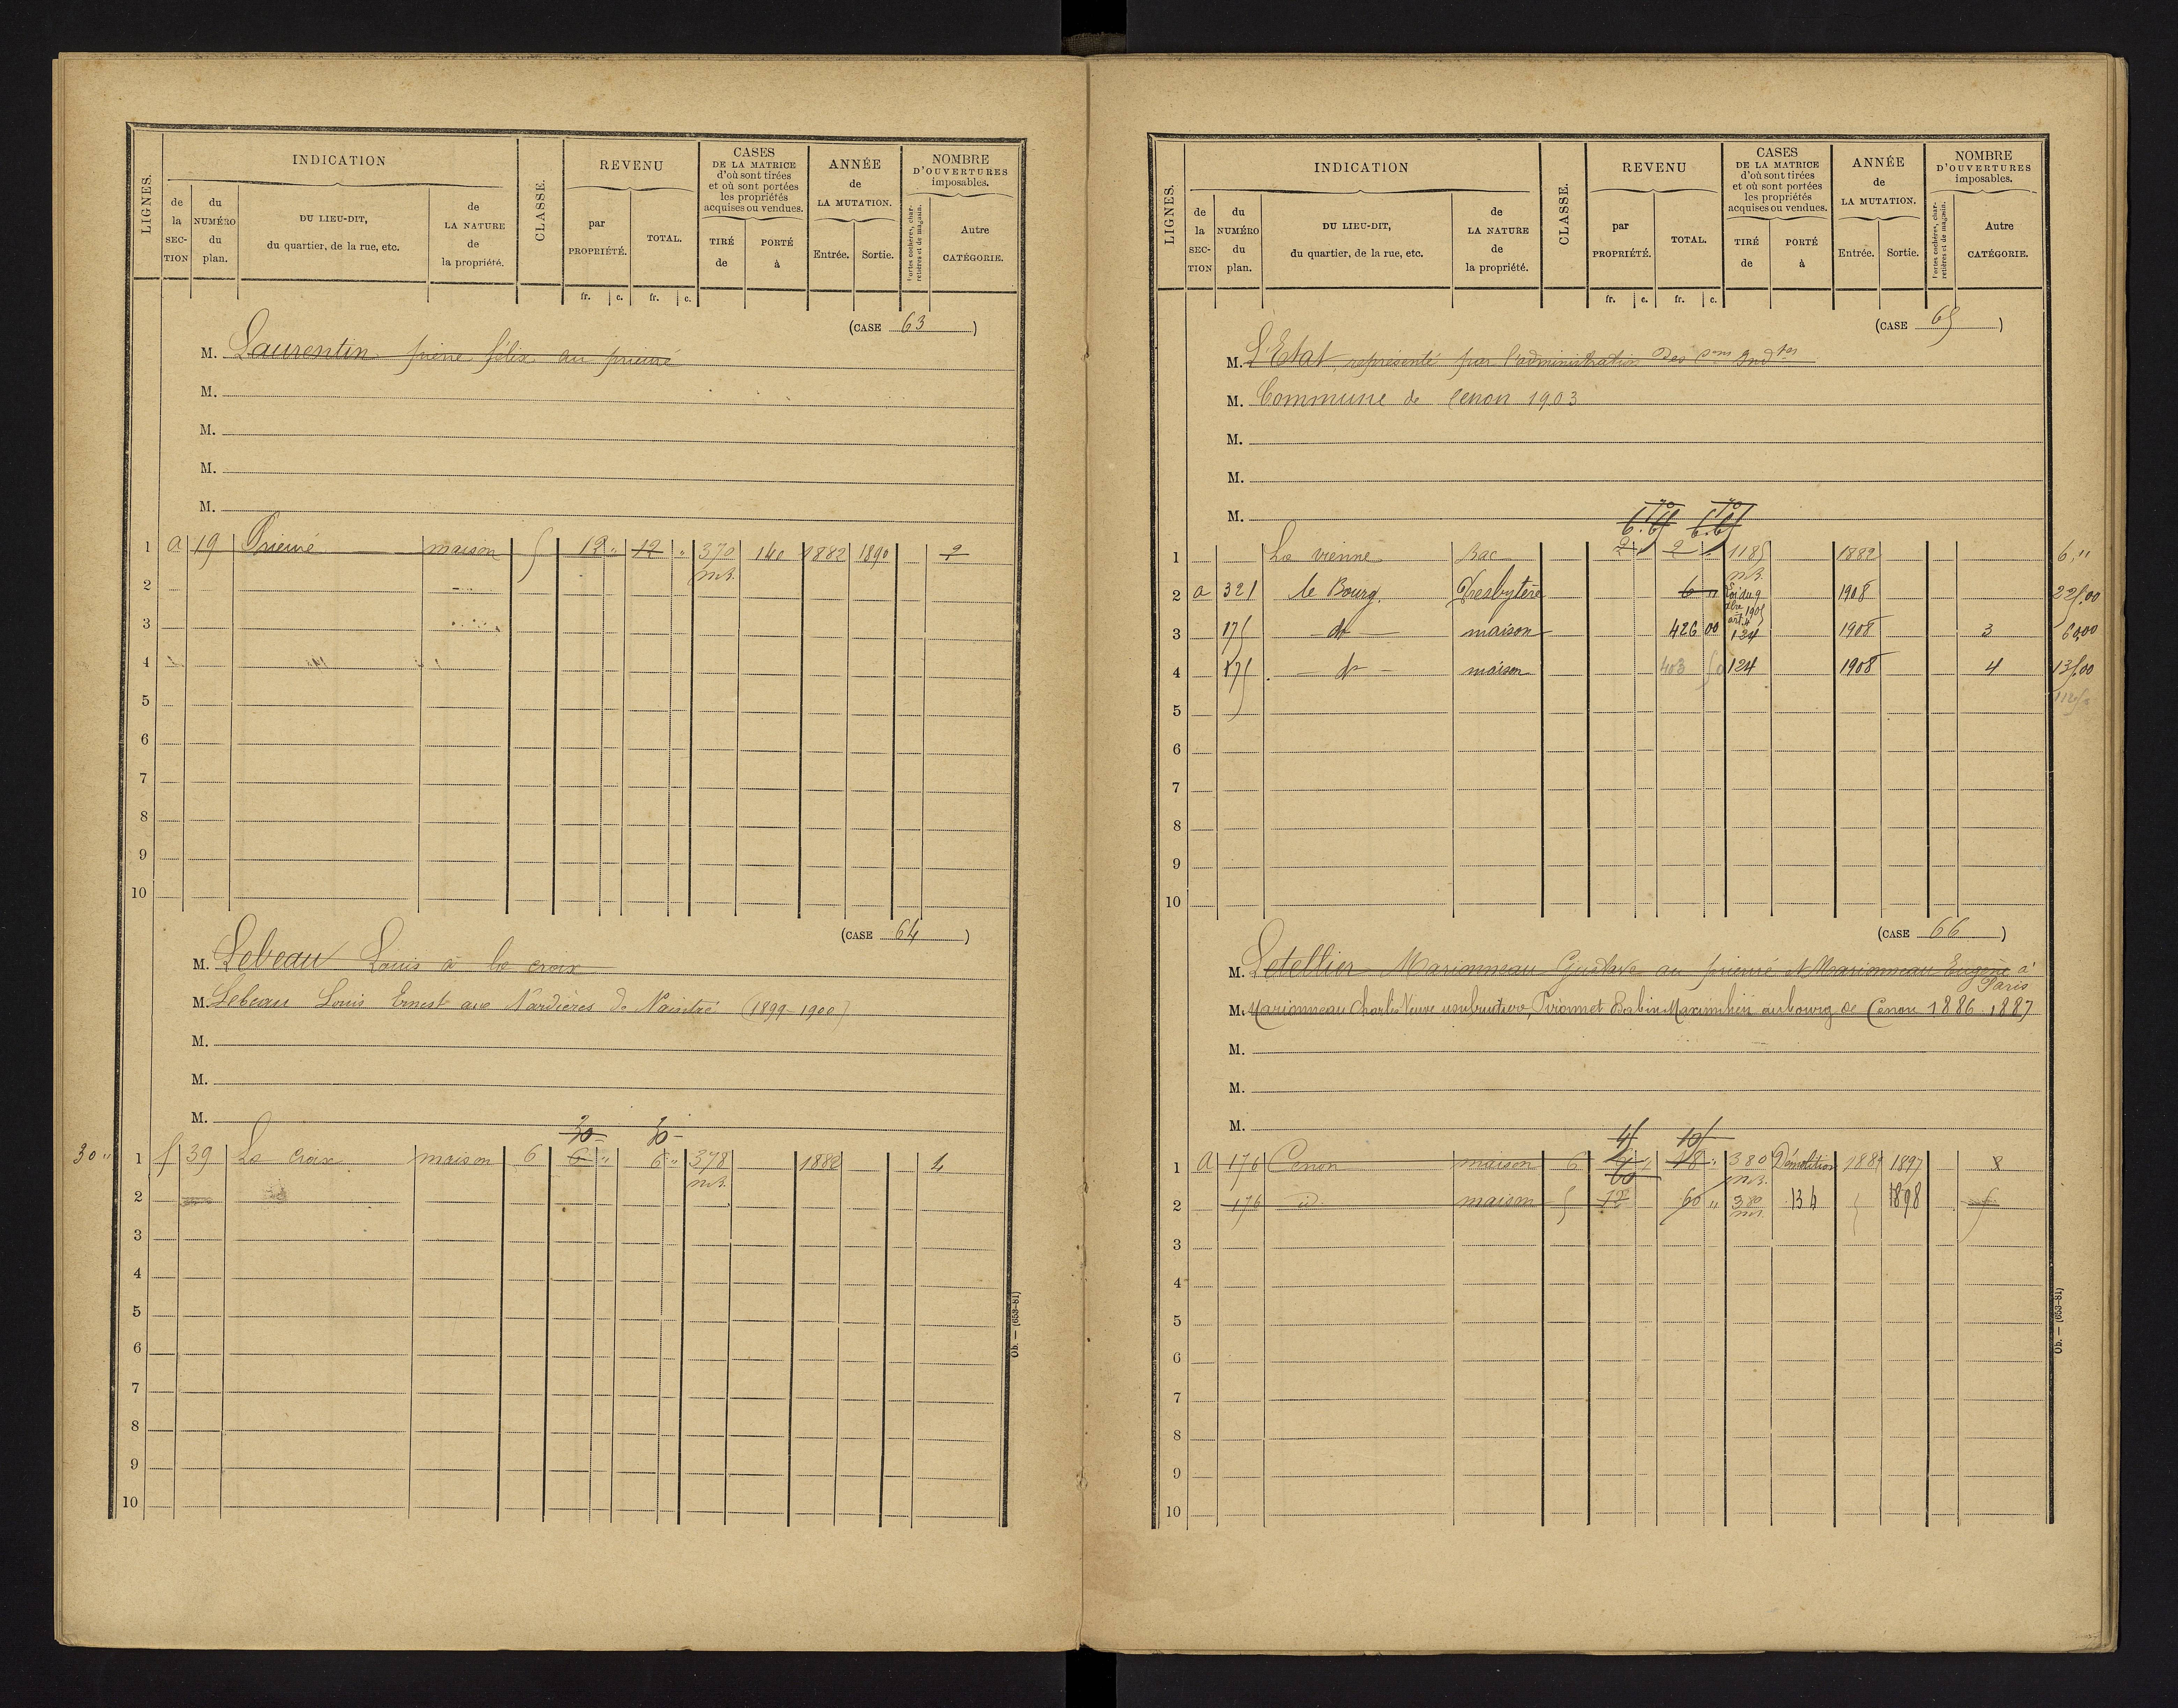 LIGNES.
INDICATION
de la SECTION
du NUMÉRO du plan.
DU LIEU-DIT, du quartier, de la rue, etc.
de LA NATURE de la propriété.
CLASSE.
REVENU
par PROPRIÉTÉ.
TOTAL.
CASES DE LA MATRICE d'où sont tirées et où sont portées les propriétés acquises ou vendues.
TIRÉ de
PORTÉ à
ANNÉE de LA MUTATION.
Entrée. Sortie.
NOMBRE D'OUVERTURES imposables.
Portes cochères, charretières et de magasin.
Autre CATÉGORIE.
fr. c. fr. c.
(CASE 63)
M. Laurentin pierre félix au prieuré
M.
M.
M.
M.
1 a 19 Prieuré maison 5 12 " 12 " 370 140 1882 1890 2
m.B.
2
3
4
5
6
7
8
9
10
(CASE 64)
M. Lebeau Louis à la croix
M. Lebeau Louis Ernest aux Nardières de Naintré (1899-1900)
M.
M.
M.
30 30
30 " 1 f 39 La Croix maison 6 6 " 6 " 378 1882 4
m.B.
2
3
4
5
6
7
8
9
10
Ob. — (653-81)
LIGNES.
INDICATION
de la SECTION
du NUMÉRO du plan.
DU LIEU-DIT, du quartier, de la rue, etc.
de LA NATURE de la propriété.
CLASSE.
REVENU
par PROPRIÉTÉ.
TOTAL.
CASES DE LA MATRICE d'où sont tirées et où sont portées les propriétés acquises ou vendues.
TIRÉ de
PORTÉ à
ANNÉE de LA MUTATION.
Entrée. Sortie.
NOMBRE D'OUVERTURES imposables.
Portes cochères, charretières et de magasin.
Autre CATÉGORIE.
fr. c. fr. c.
(CASE 65)
M. L'Etat représenté par l'administration des
M. Commune de Cenon 1903
M.
M.
M.
6.65 6.65
1 La vienne Bac 2 2 1185 1882 6,"
m.B.
2 a 321 le Bourg. Presbytère 6 " Loi du 9 dbre 1905 art. 4 1908 225,00
3 175 do maison 426 00 124 1908 3 60,00
4 175 do maison 403 50 124 1908 4 135,00
5
6
7
8
9
10
(CASE 66)
M. Letellier Marionneau Gustave au prieuré et Marionneau Eugène à
Paris
M. Marionneau Charles Veuve usufruitière, Pironnet Babin Maximilien au bourg de Cenon 1886 1887
M.
M.
M.
45 105
1 A 176 Cenon maison 6 18 " 380 Démolition 1882 1897 8
60 m.B.
2 176 id maison 5 12 60 " 380 134 1898 5
m.B.
3
4
5
6
7
8
9
10
Ob. — (653-81)